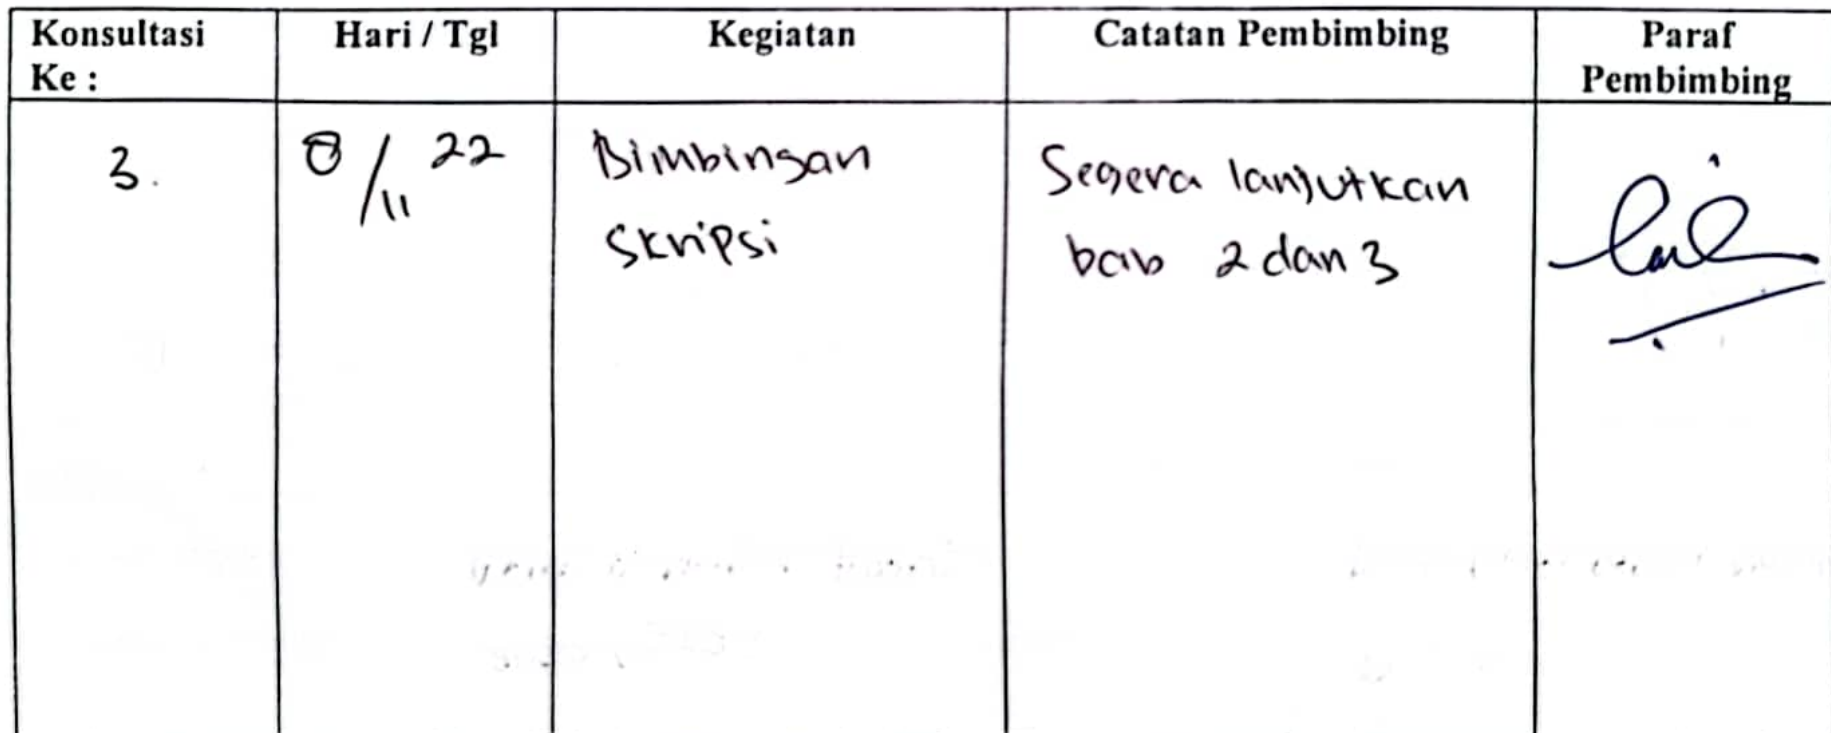 Konsultasi Ke :
Hari / Tgl
Kegiatan
Catatan Pembimbing
Paraf Pembimbing
3.
8/11 22
Bimbingan
Skripsi
Segera lanjutkan
bab 2 dan 3